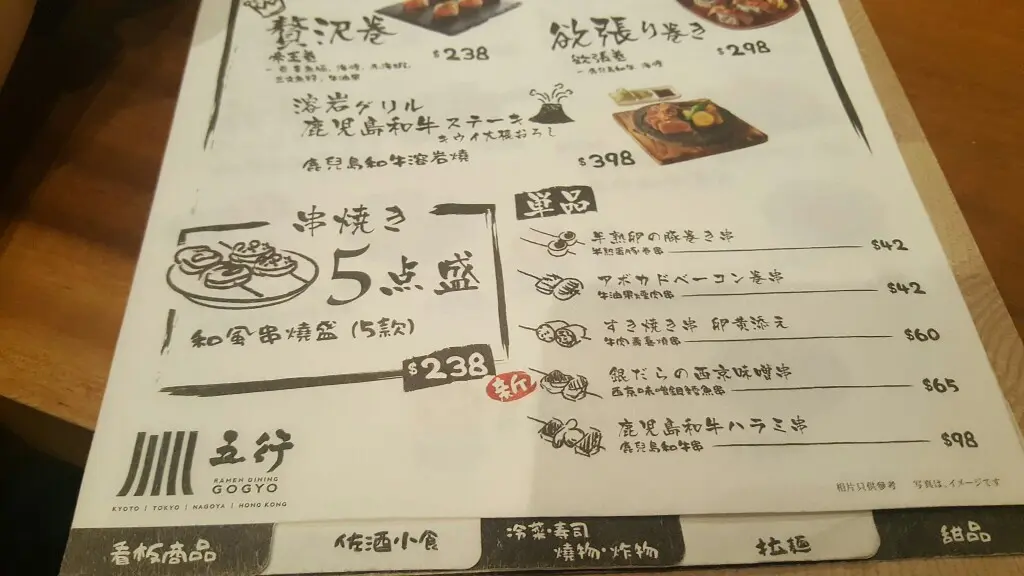 贅沢巻
$238
欲張り巻き
欲張巻
$298
- 鹿兒島和牛、海膽
溶岩グリル
鹿児島和牛ステーキ
キウイ大根おろし
鹿兒島和牛溶岩燒
$398
串焼き
5点盛
和風串燒盛 (5款)
$238
単品
半熟卵の豚巻き串
半熟蛋豚卷串
$42
アボカドベーコン巻串
牛油果煙肉串
$42
すき焼き串 卵黄添え
$60
新
銀だらの西京味噌串
西京味噌銀鱈魚串
$65
鹿児島和牛ハラミ串
鹿兒島和牛串
$98
相片只供參考 写真は、イメージです
五行
RAMEN DINING
GOGYO
KYOTO | TOKYO | NAGOYA | HONG KONG
看板商品
佐酒小食
冷菜·寿司
燒物·炸物
拉麵
甜品